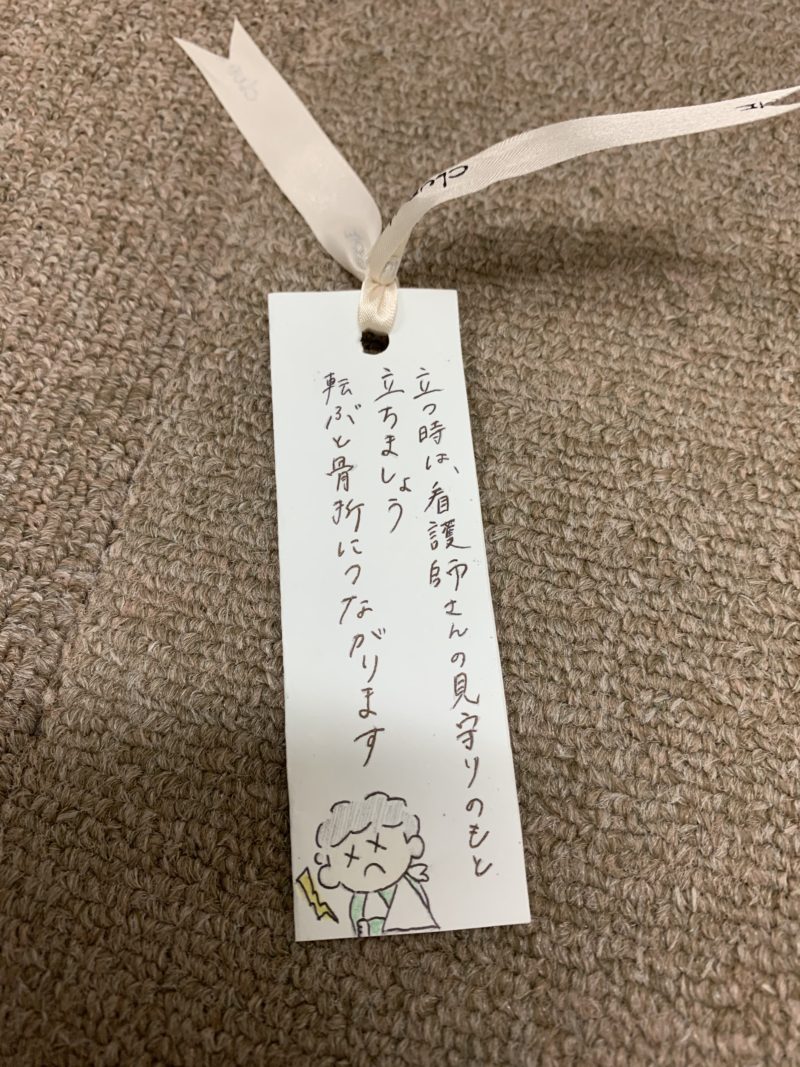 立つ時は、看護師さんの見守りのもと
立ちましょう
転ぶと骨折につながります